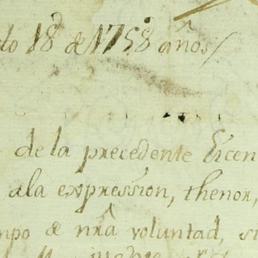 do 18 de 1758 años/
de la precedente Licen
ala expression, thenor,
npo de nrâ voluntad, si